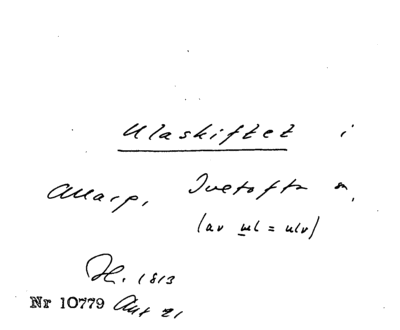 Ulaskiftet i
Allarp, Tvetofta s.
(av ul = ulv)
H. 1813
Nr 10779 Akt 21